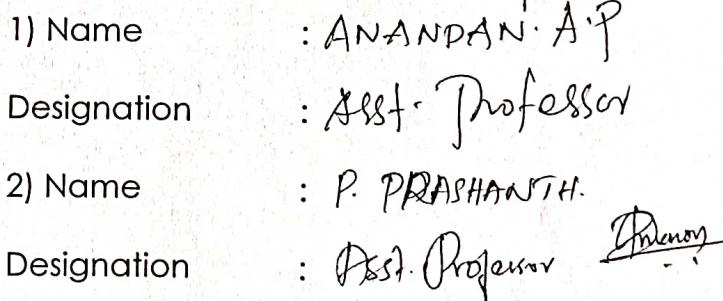 1) Name : ANANDAN. A.P
Designation : Asst. Professor
2) Name : P. PRASHANTH.
Designation : Asst. Professor